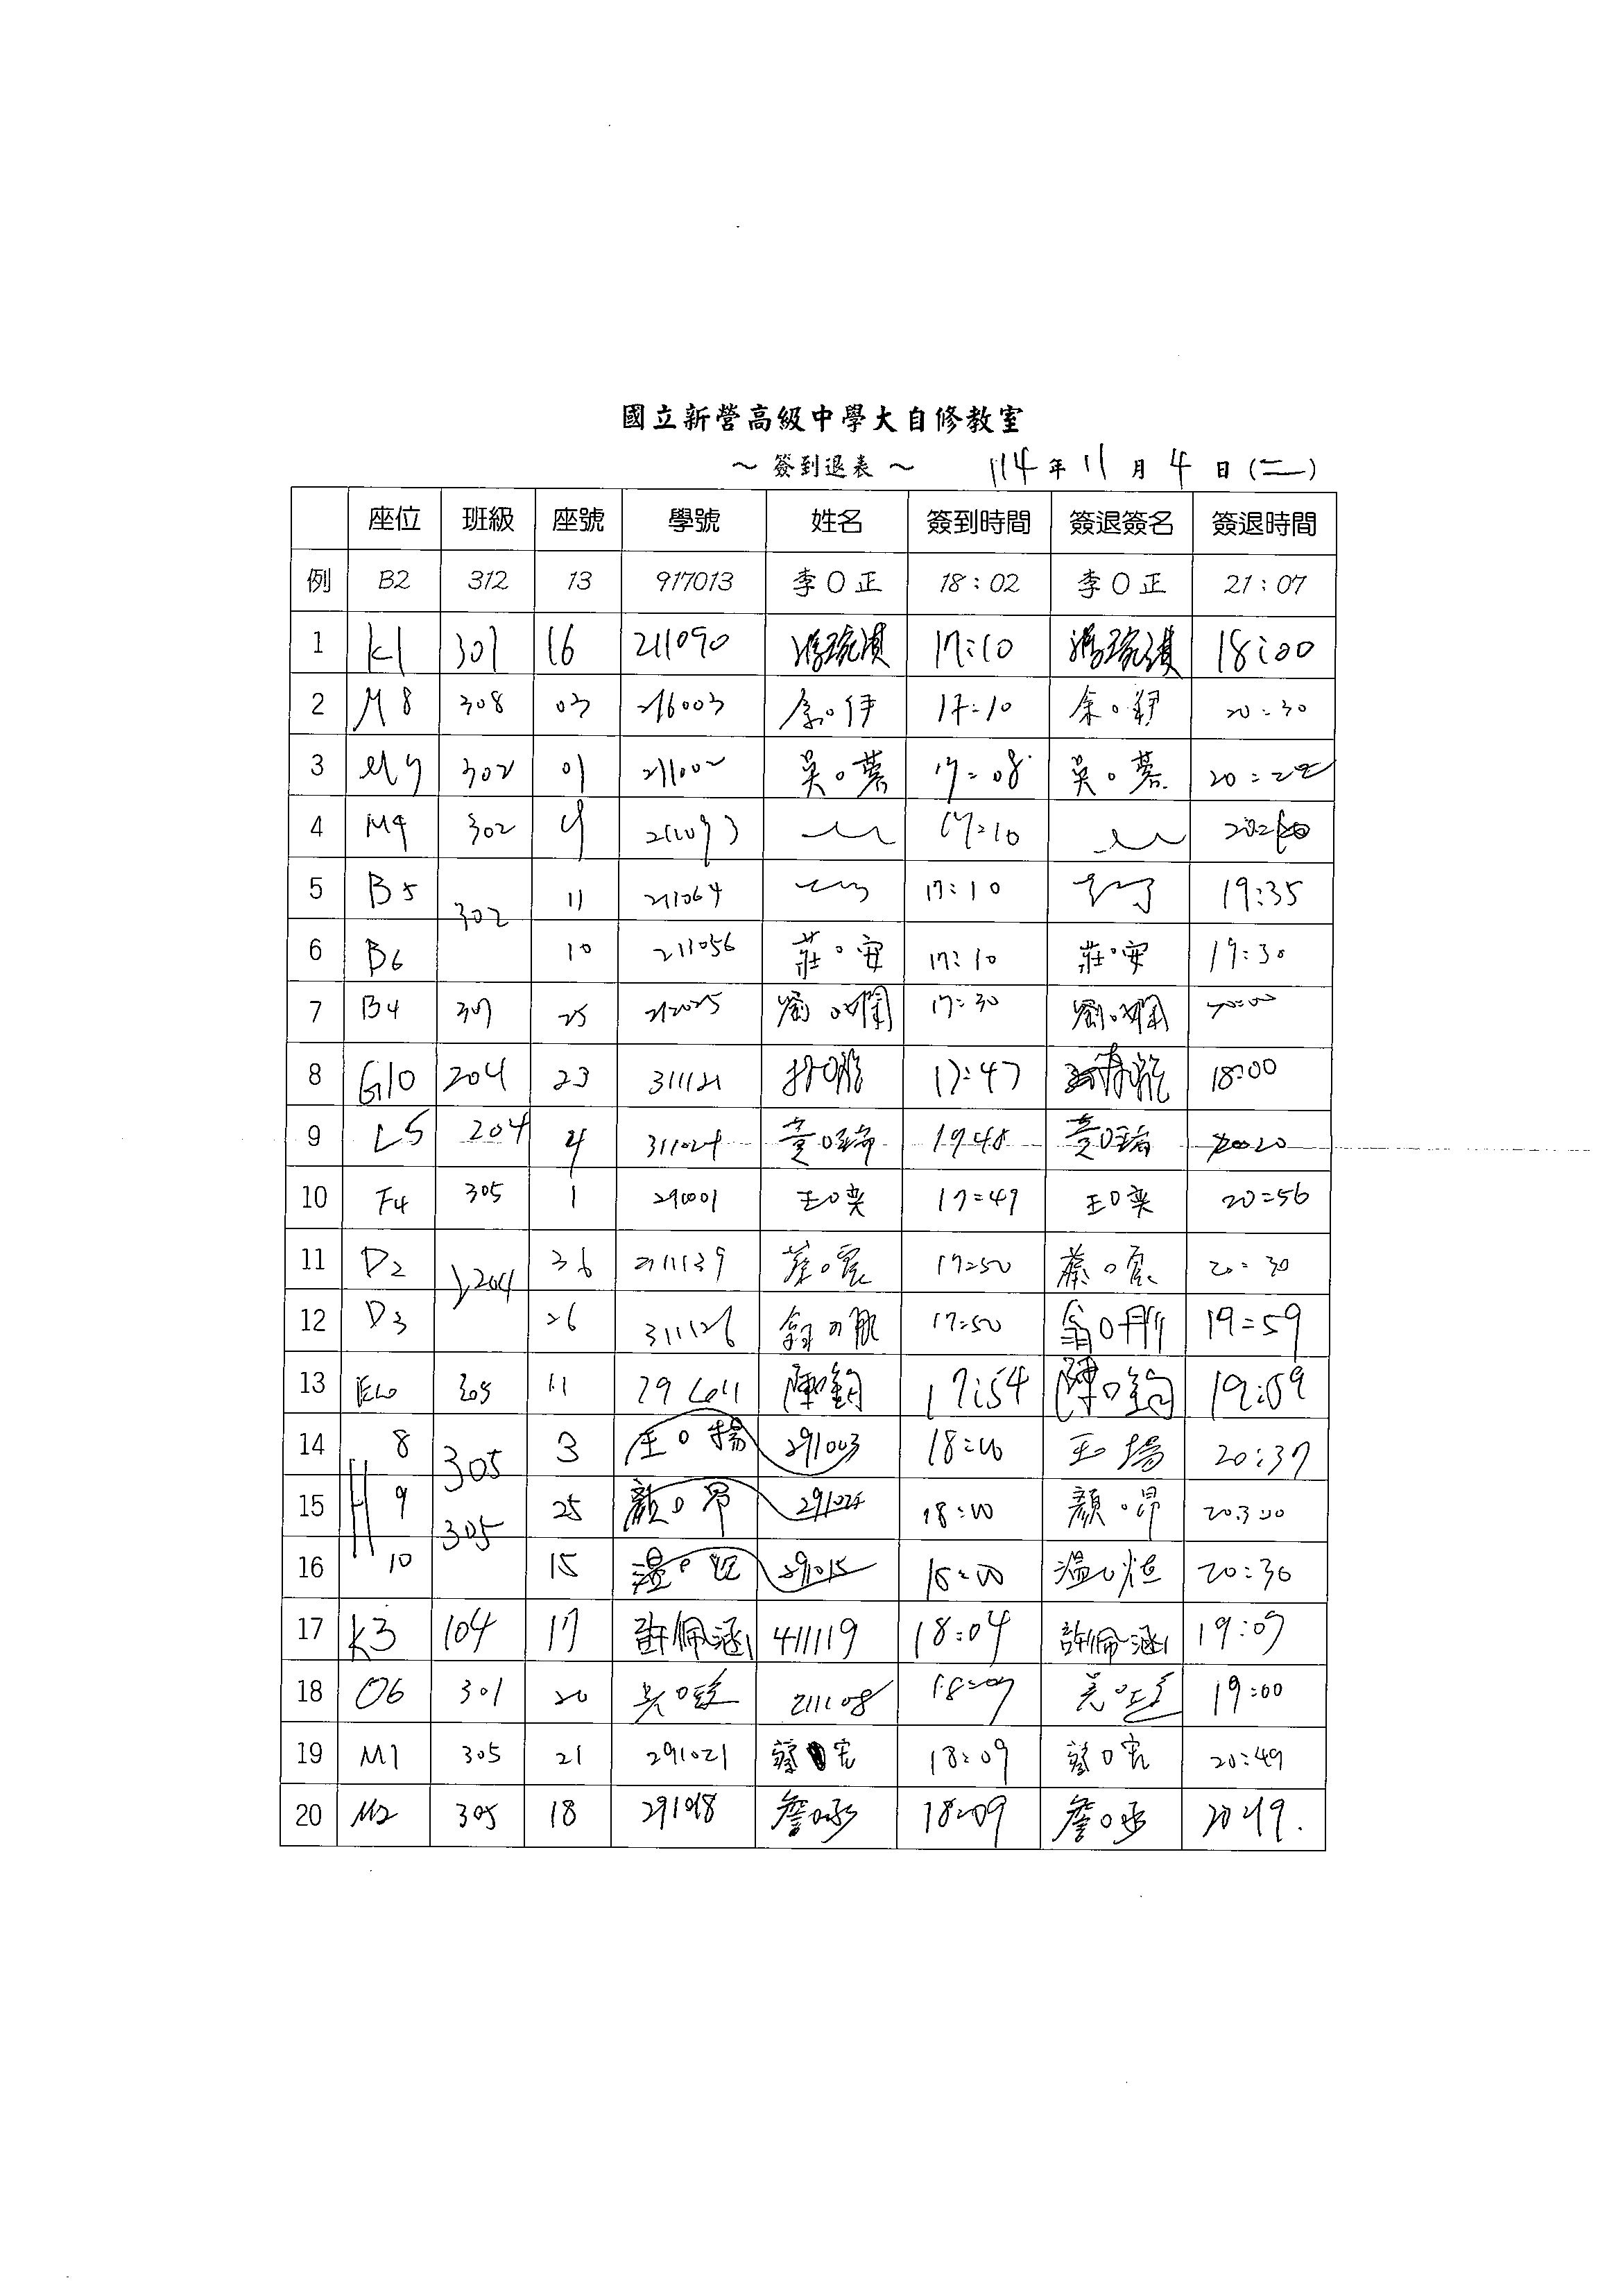 國立新營高級中學大自修教室
～ 簽到退表 ～ 114 年 11 月 4 日 (二)
座位 班級 座號 學號 姓名 簽到時間 簽退簽名 簽退時間
例 B2 312 13 917013 李O正 18:02 李O正 21:07
1 K1 301 16 211090 17:10 18:00
2 M8 308 03 216003 余O伊 17:10 20:30
3 M7 302 01 211002 吳O蓁 17:08 吳O蓁
4 M9 302 17:10
5 B5 302 11 211064 17:10 19:35
6 B6 10 211056 莊O安 17:10 莊O安 19:30
7 B4 307 25 212025 劉O嫻 17:30 劉O嫻 20:00
8 G10 204 23 311121 17:47 18:00
9 L5 204 4 311024 黃O瑜 1948 黃O瑜 2020
10 F4 305 1 王O奕 17:49 王O奕 20:56
11 D2 204 36 211139 蔡O宸 17:50 蔡O宸 20:30
12 D3 26 311126 17:50 19:59
13 305 11 陳O鈞 17:54 陳O鈞 19:09
14 H 8 305 3 王O揚 291003 18:00 王O揚 20:37
15 9 305 25 顏O昂 18:00 顏O昂
16 10 15 溫O 291015 18:00 20:30
17 K3 104 17 許佩涵 411119 18:04 許佩涵 19:07
18 O6 301 20 吳O 211108 18:09 吳O 19:00
19 M1 305 21 291021 蔡O宏 18:09 蔡O宏 20:49
20 M2 305 18 291018 詹O承 18:09 詹O承 2049.